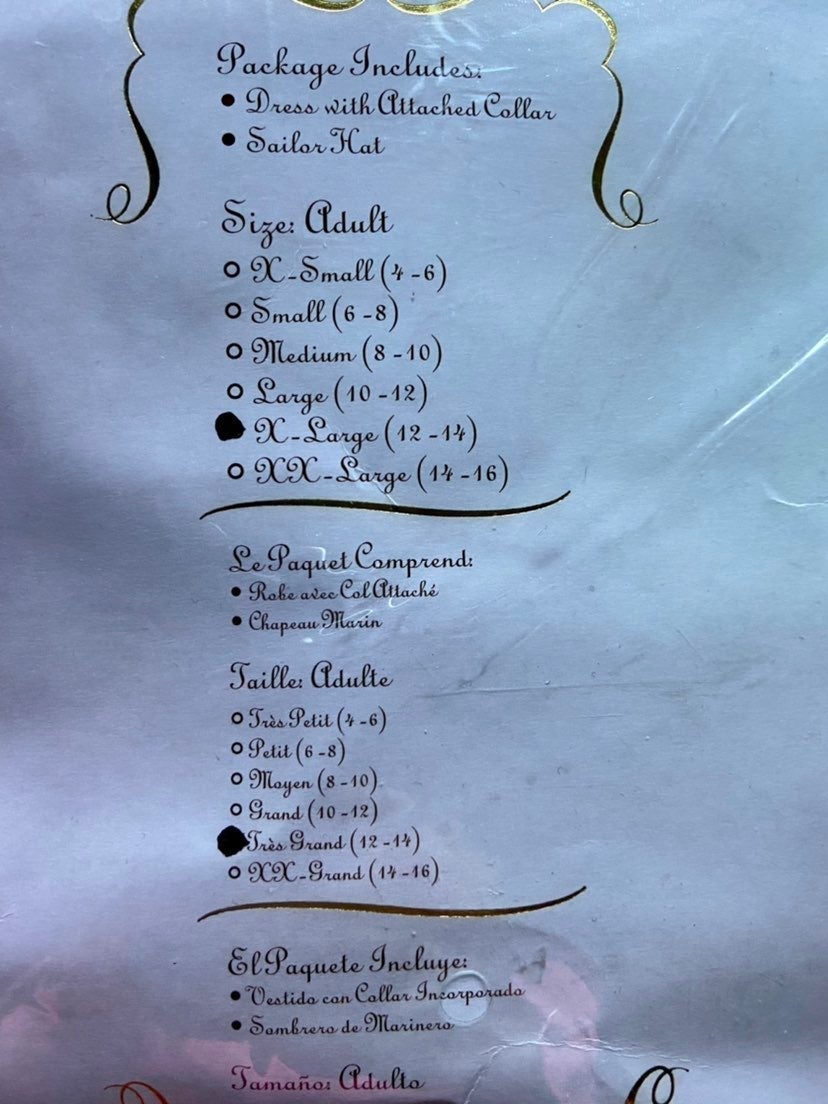 Package Includes:
• Dress with Attached Collar
• Sailor Hat
Size: Adult
○ X-Small (4-6)
○ Small (6-8)
○ Medium (8-10)
○ Large (10-12)
● X-Large (12-14)
○ XX-Large (14-16)
Le Paquet Comprend:
• Robe avec Col Attaché
• Chapeau Marin
Taille: Adulte
○ Très Petit (4-6)
○ Petit (6-8)
○ Moyen (8-10)
○ Grand (10-12)
● Très Grand (12-14)
○ XX-Grand (14-16)
El Paquete Incluye:
• Vestido con Collar Incorporado
• Sombrero de Marinero
Tamaño: Adulto